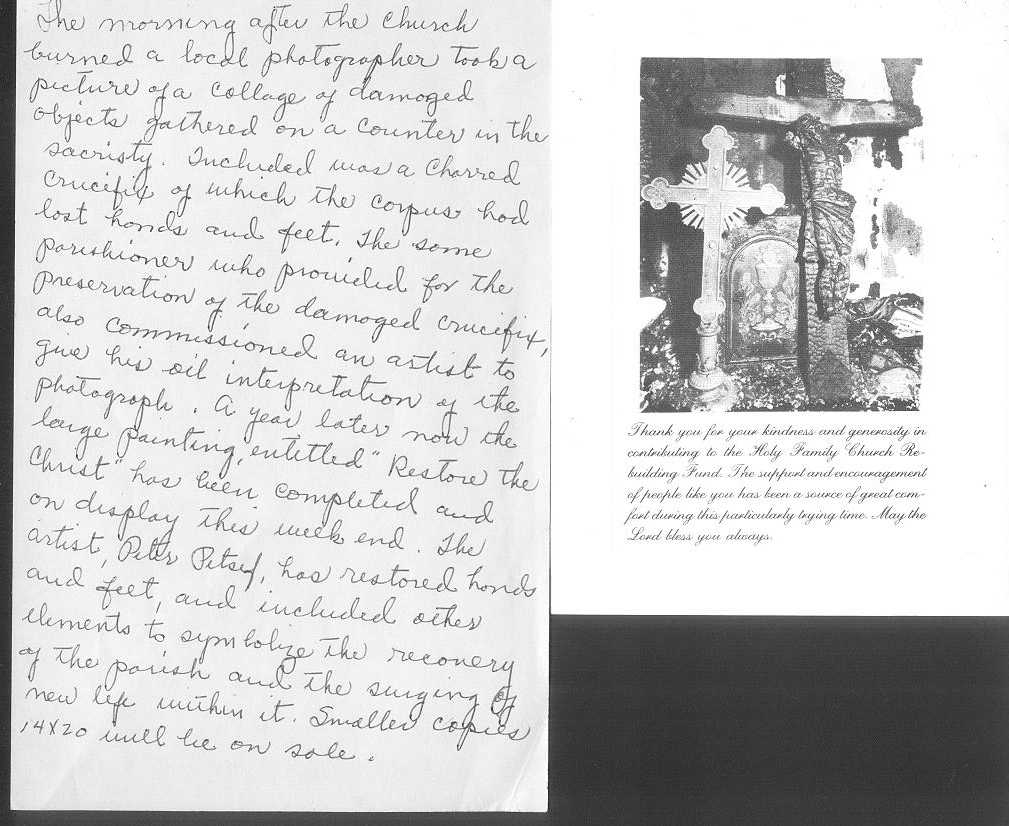 The morning after the Church
burned a local photographer took a
picture of a collage of damaged
objects gathered on a counter in the
sacristy. Included was a Charred
crucifix of which the corpus had
lost hands and feet. The same
parishioner who provided for the
preservation of the damaged crucifix,
also commissioned an artist to
give his oil interpretation of the
photograph. A year later now the
large painting, entitled "Restore the
Christ" has been completed and
on display this week end. The
artist, Peter, has restored hands
and feet, and included other
elements to symbolize the recovery
of the parish and the surging of
new life within it. Smaller copies
14X20 will be on sale.
Thank you for your kindness and generosity in
contributing to the Holy Family Church Re-
building Fund. The support and encouragement
of people like you has been a source of great com-
fort during this particularly trying time. May the
Lord bless you always.